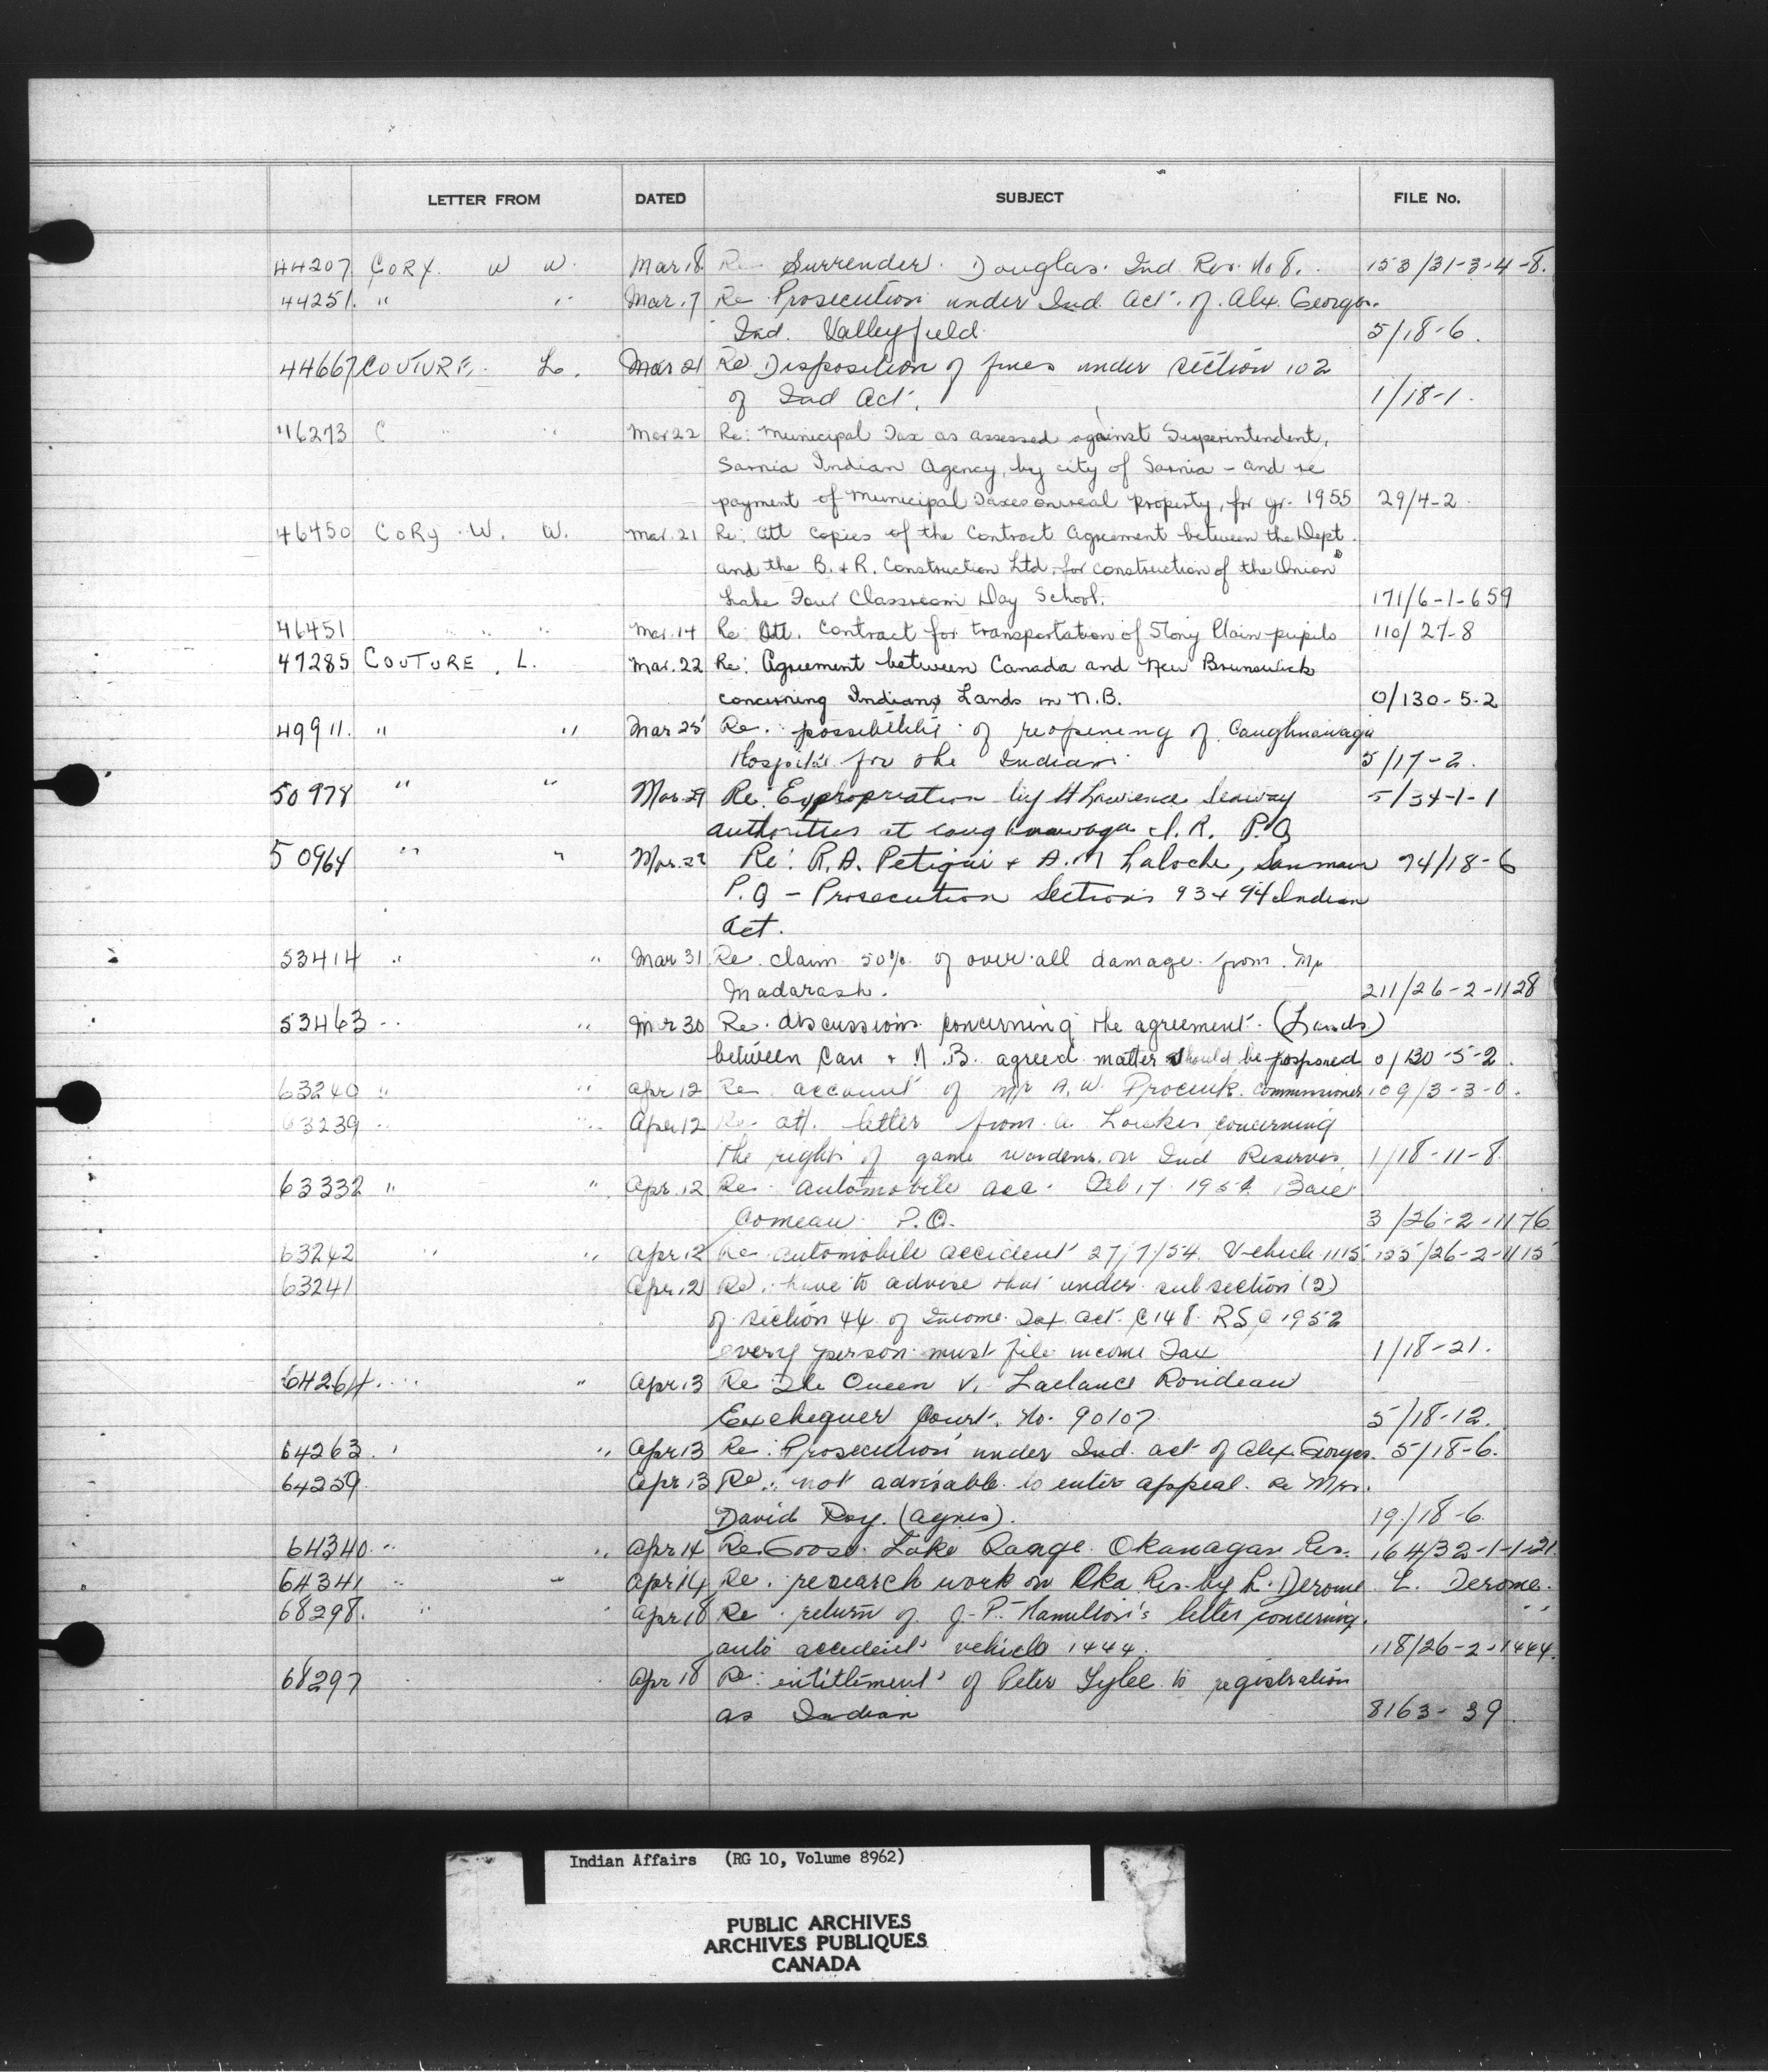 LETTER FROM DATED SUBJECT FILE No.
44207 CORY. W W. Mar 18 Re Surrender. Douglas. Ind Res. No 8. 153/31-3-4-8.
44251. " " Mar. 17 Re Prosecution under Ind. Act. of. Alex. Georges.
Ind. Valleyfield. 5/18-6.
44667 COUTURE, L. Mar 21 Re Disposition of fines under section 102
of Ind Act. 1/18-1.
46273 C " " Mar 22 Re: Municipal Tax as assessed against Superintendent,
Sarnia Indian Agency, by city of Sarnia - and re
payment of Municipal Taxes on real property, for yr. 1955 29/4-2.
46450 CORY. W. W. Mar. 21 Re: Att copies of the Contract Agreement between the Dept.
and the B. & R. Construction Ltd, for construction of the Onion
Lake Four Classroom Day School. 171/6-1-659
46451 " " " Mar. 14 Re: Att. Contract for transportation of Stony Plain pupils 110/27-8
47285 COUTURE, L. Mar. 22 Re: Agreement between Canada and New Brunswick
concerning Indians Lands in N.B. 0/130-5-2
49911. " " Mar 25 Re. possibilities of reopening of Caughnawaga
Hospital for the Indians 5/17-2.
50978 " " Mar. 29 Re: Expropriation by St Lawrence Seaway 5/34-1-1
authorities at Caughnawaga I.R. P.Q
50964 " " Mar. 29 Re: R.A. Petiqui & A. M Laloche, Sanmaur 74/18-6
P.Q - Prosecution Sections 93 & 94 Indian
Act.
53414 " " Mar 31 Re. claim 50% of over-all damage from. Mr
Madarash. 211/26-2-1128
53463 " " Mar 30 Re. discussions concerning the agreement. (Lands)
between Can & N.B. agreed matter should be posponed 0/130-5-2.
63240 " " Apr 12 Re. account of Mr A. W. Procuik. Commissioner 109/3-3-0.
63239 " " Apr 12 Re att. letter from a concerning
the rights of game wardens on Ind Reserves. 1/18-11-8.
63332 " " Apr. 12 Re. automobile acc. Feb 17. 1954 Baie
Comeau P.Q. 3/26-2-1176
63242 " " Apr 12 Re automobile accident 27/7/54. Vehicle 1115. 135/26-2-1115
63241 Apr. 12 Re. have to advise that under subsection (2)
of section 44 of Income Tax Act. C 148 RSC 1952
every person must file income Tax 1/18-21.
64264. " " Apr. 13 Re The Queen V. Laclance Rondeau
Exchequer Court. No. 90107 5/18-12.
64263. " " Apr 13 Re: Prosecution under Ind. act of Alex. Georges. 5/18-6.
64259. Apr. 13 Re: not advisable to enter appeal. re Mrs.
David Roy. (Agnes). 19/18-6.
64340. " " Apr 14 Re Goose Lake Range. Okanagan Res. 164/32-1-1-21.
64341 " " Apr 14 Re. research work on Oka Res. by L. Derome L. Derome.
68298. " " Apr 18 Re return of J-P. Hamilton's letter concerning. "
auto accident vehicle 1444. 118/26-2-1444.
68297 Apr 18 Re: entitlement of Peter Tylee to registration
as Indian 8163-39.
Indian Affairs (RG 10, Volume 8962)
PUBLIC ARCHIVES
ARCHIVES PUBLIQUES
CANADA